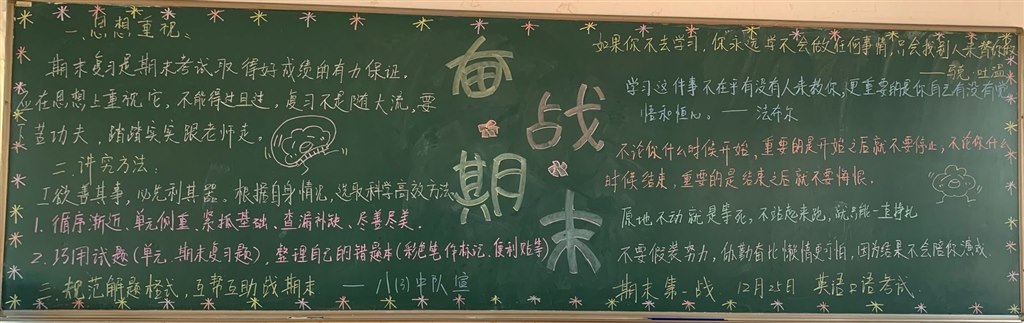 一、思想重视、
期末复习是期末考试取得好成绩的有力保证。
应在思想上重视它,不能得过且过,复习不是随大流,要
下苦功夫,踏踏实实跟老师走。
二、讲究方法:
工欲善其事,必先利其器。根据自身情况,选取科学高效方法
1. 循序渐近、单元侧重、紧抓基础、查漏补缺、尽善尽美.
2. 巧用试题(单元、期末复习题),整理自己的错题本(彩色笔作标记、便利贴等)
三、规范解题格式,互帮互助战期末 —— 八(3)中队宣
奋
战
期
末
如果你不去学习,你永远学不会做任何事情,只会找别人来帮你做
——马克·吐温
学习这件事不在乎有没有人来教你,更重要的是你自己有没有觉
悟和恒心。——法布尔
不论你什么时候开始,重要的是开始之后就不要停止,不论你什么
时候结束,重要的是结束之后就不要悔恨.
原地不动就是等死,不站起来跑,就只能一直挣扎
不要假装努力,你勤奋比懒惰更可怕,因为结果不会陪你演戏.
期末第一战 12月25日 英语口语考试.